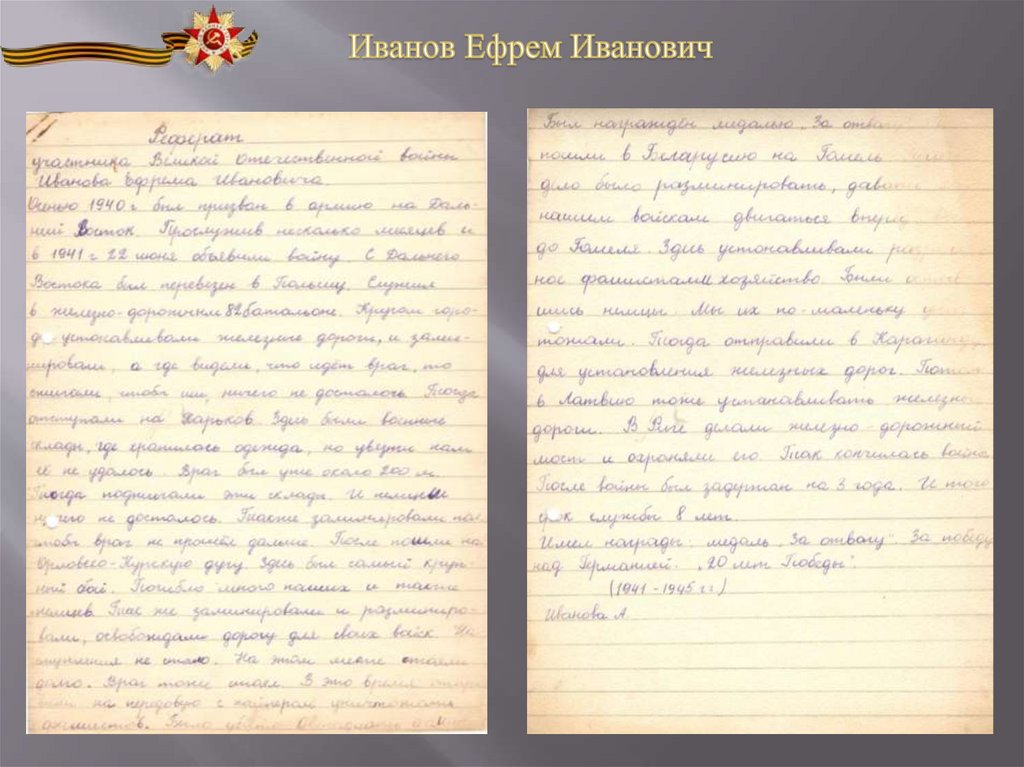 Иванов Ефрем Иванович
Реферат
участника Великой Отечественной войны
Иванова Ефрема Ивановича.
Осенью 1940 г был призван в армию на Даль-
ний Восток. Прослужив несколько месяцев и
в 1941 г 22 июня объявили войну. С Дальнего
Востока был перевезен в Польшу. Служил
в железно-дорожном 82 батальоне. Кругом горо-
да устонавливали железные дороги, и замин-
нировали, а где видели, что идёт враг, то
сжигали, чтобы им, ничего не досталось. Тогда
отступали на Харьков. Здесь были военные
склады, где хранилась одежда, но увезти нам
её не удалось. Враг был уже около 200 м.
Тогда поджигали эти склады. И немцам
ничего не досталось. Также заминировали
чтобы враг не прошёл дальше. После пошли на
Орловско-Курскую дугу. Здесь был самый круп-
ный бой. Погибло много наших и также
немцев. Так же заминировали и разминиро-
вали, освобождали дорогу для своих войск. На
ступления не стало. На этом месте стояли
долго. Враг тоже стоял. В это время
на передовую с
Было
Был награждён медалью „За отва
пошли в Беларусию на Гомель
дело было разминировать,
нашим войскам двигаться вперёд
до Гомеля. Здесь устонавливали
ное фашистами хозяйство. Были
шись немцы. Мы их по-маленьку
тожали. Тогда отправили в
для установления железных дорог. Потом
в Латвию тоже устанавливать железные
дороги. В Риге делали железно-дорожний
мост и охраняли его. Так кончилась война
После войны был задержан на 3 года. И того
срок службы 8 лет.
Имел награды: медаль „За отвагу". За победу
над Германией". „20 лет Победы".
(1941-1945 гг)
Иванова А.